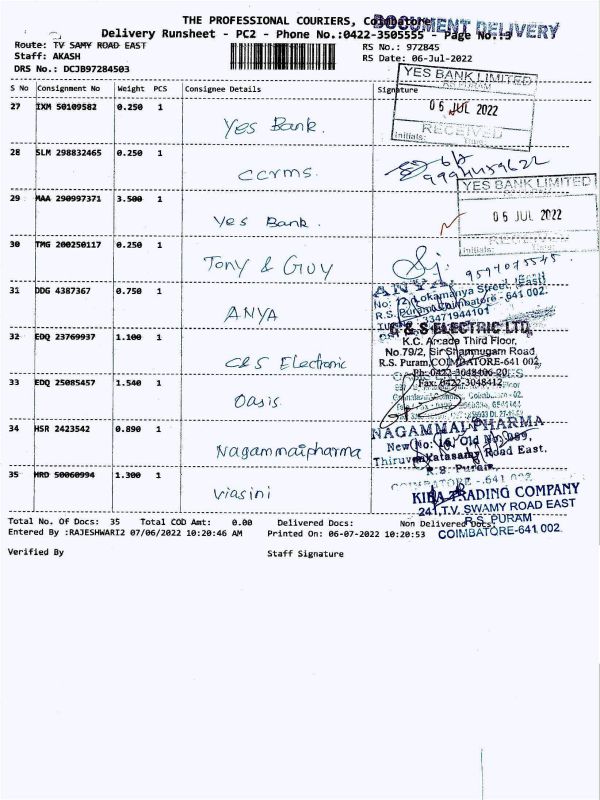 THE PROFESSIONAL COURIERS, Coimbatore
DOCUMENT DELIVERY
Delivery Runsheet - PC2 - Phone No.:0422-3505555 - Page No.:3
Route: TV SAMY ROAD EAST
RS No.: 972845
Staff: AKASH
RS Date: 06-Jul-2022
DRS No.: DCJB97284503
YES BANK LIMITED
R.S. PURAM
06 JUL 2022
RECEIVED
Initials: Time:
S No Consignment No Weight PCS Consignee Details Signature
27 IXM 50109582 0.250 1
Yes Bank.
28 SLM 298832465 0.250 1
ccrms.
29 MAA 290997371 3.500 1
Yes Bank.
YES BANK LIMITED
06 JUL 2022
RECEIVED
Initials:
30 TMG 200250117 0.250 1
Tony & Guy
31 DDG 4387367 0.750 1
ANYA
ANYA
No: 72, Lokamanya Street, (East)
R.S. Puram, Coimbatore - 641 002.
32 EDQ 23769937 1.100 1
C&S Electronic
C & S ELECTRIC LTD,
K.C. Arcade Third Floor,
No.79/2, Sir Shanmugam Road
R.S. Puram, COIMBATORE-641 002.
Ph: 0422-3048406-20
Fax: 0422-3048412
33 EDQ 25085457 1.540 1
Oasis
34 HSR 2423542 0.890 1
Nagammaipharma
NAGAMMAI PHARMA
New No: 16, Old No: 099,
Thiruvenkatasamy Road East,
R.S. Puram,
COIMBATORE - 641 002
35 HRD 50060994 1.300 1
Viasini
KIBA TRADING COMPANY
241, T.V. SWAMY ROAD EAST
R.S. PURAM
COIMBATORE-641 002.
Total No. Of Docs: 35 Total COD Amt: 0.00 Delivered Docs: Non Delivered Docs:
Entered By :RAJESHWARI2 07/06/2022 10:20:46 AM Printed On: 06-07-2022 10:20:53
Verified By Staff Signature